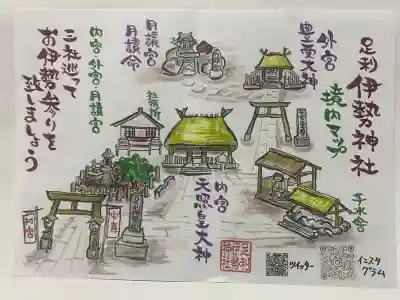 足利伊勢神社
境内マップ
外宮
豊受大神
月讀宮
月讀命
内宮・外宮・月讀宮
三社巡って
お伊勢参りを
致しましょう
社務所
内宮
天照皇大神
手水舎
内宮
足利
伊勢
神社
ツイッター
インスタ
グラム